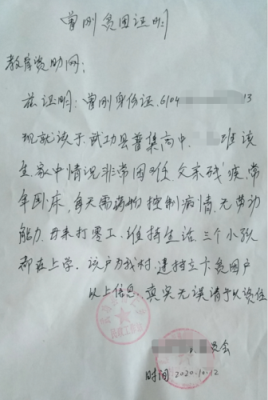 曾刚贫困证明
教育资助网：
兹证明：曾刚身份证：6104 13
现就读于武功县普集高中， 班该
生家中情况非常困难，父亲残疾，常
年卧床，每天需药物控制病情，无劳动
能力，母亲打零工，维持生活三个小孩
都在上学。该户为我村建档立卡贫困户
以上信息，真实无误请予以资助
委会
时间 2020.10.12